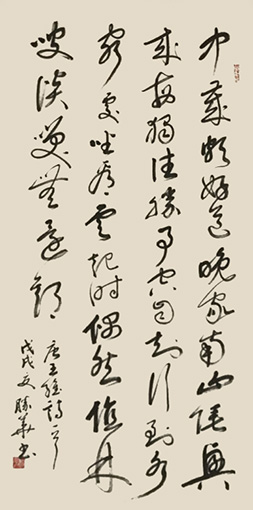 中歲頗好道晚家南山陲興
來每獨往勝事空自知行到水
窮處坐看雲起時偶然值林
叟談笑無還期
唐王維詩一首
戊戌夏勝華書